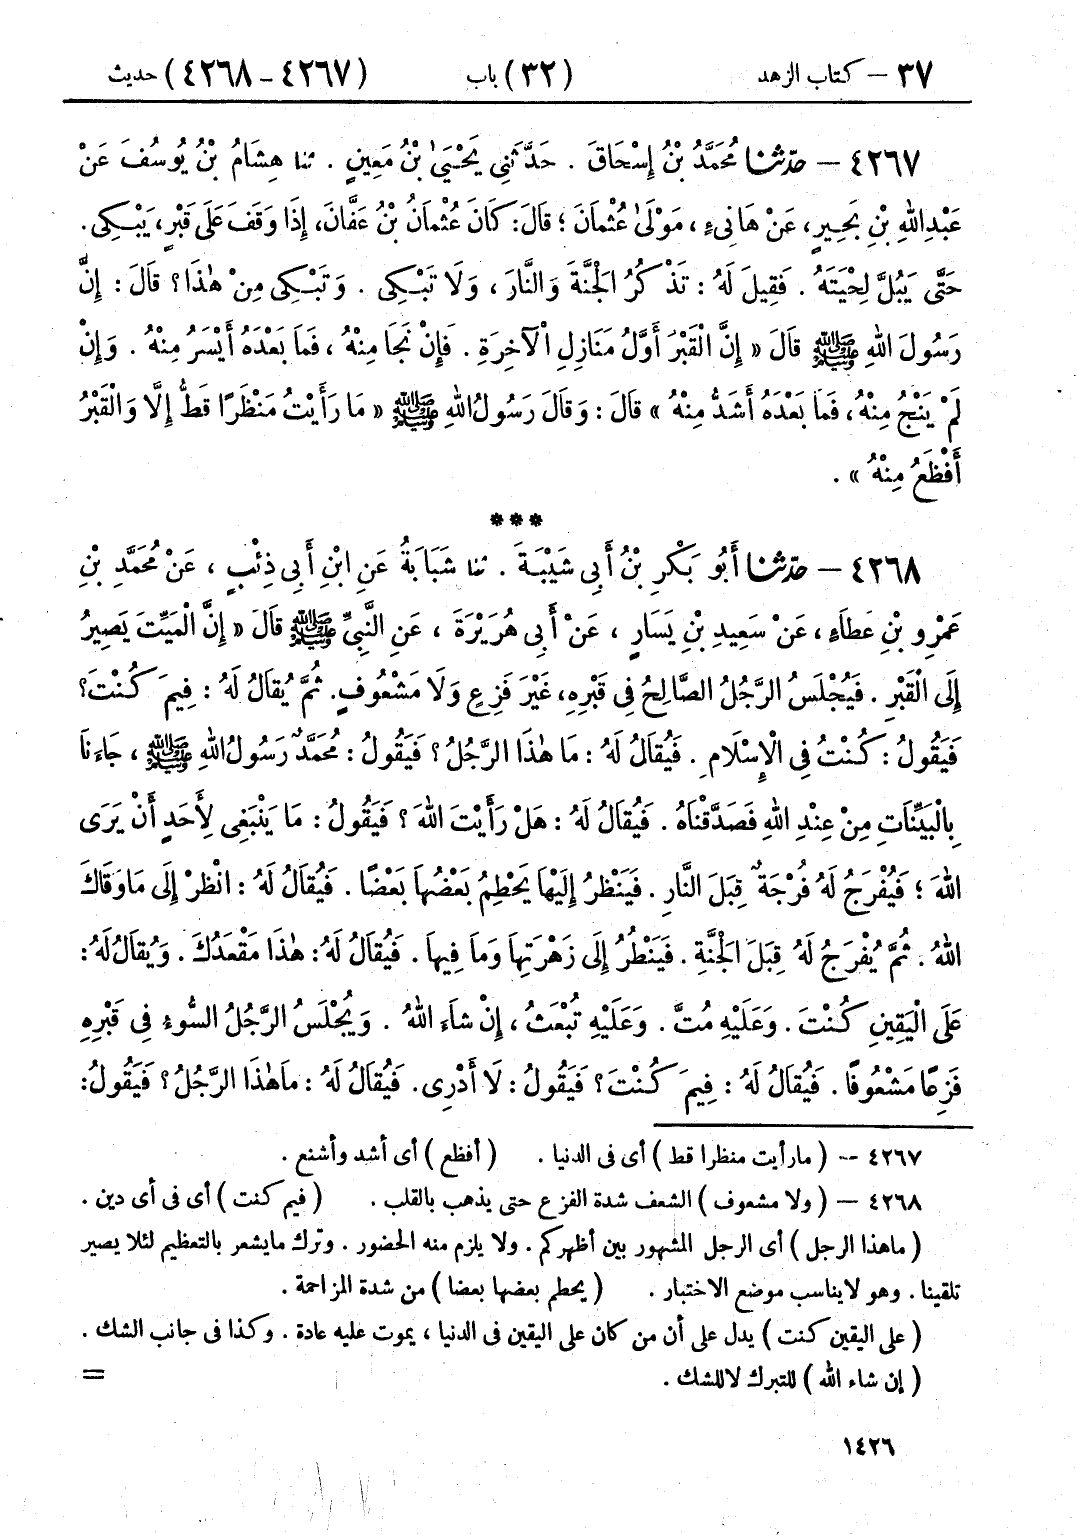 ٣٧ – كتاب الزهد (٣٢) باب (٤٢٦٧ – ٤٢٦٨) حديث
٤٢٦٧ – حدّثنا مُحَمَّدُ بْنُ إِسْحَاقَ . حَدَّثَنِي يَحْيَىٰ بْنُ مَعِينٍ . ثنا هِشَامُ بْنُ يُوسُفَ عَنْ
عَبْدِ اللهِ بْنِ بَحِيرٍ، عَنْ هَانِىءٍ ، مَوْلَىٰ عُثْمَانَ ؛ قَالَ: كَانَ عُثْمَانُ بْنُ عَفَّانَ، إِذَا وَقَفَ عَلَى قَبْرٍ، يَبْكِى.
حَتَّى يَبُلَّ لِحْيَتَهُ . فَقِيلَ لَهُ : تَذْكُرُ الْجَنَّةَ وَالنَّارَ ، وَلَا تَبْكِى . وَتَبْكِى مِنْ هٰذَا؟ قَالَ : إِنَّ
رَسُولَ اللهِ ﷺ قَالَ « إِنَّ الْقَبْرَ أَوَّلُ مَنَازِلِ الْآخِرَةِ . فَإِنْ نَجَا مِنْهُ ، فَمَا بَعْدَهُ أَيْسَرُ مِنْهُ . وَإِنْ
لَمْ يَنْجُ مِنْهُ، فَمَا بَعْدَهُ أَشَدُّ مِنْهُ » قَالَ : وَقَالَ رَسُولُ اللهِ ﷺ « مَا رَأَيْتُ مَنْظَرًا قَطُّ إِلَّا وَالْقَبْرُ
أَفْظَعُ مِنْهُ » .
***
٤٢٦٨ – حدّثنا أَبُو بَكْرِ بْنُ أَبِي شَيْبَةَ . ثنا شَبَابَةُ عَنِ ابْنِ أَبِي ذِئْبٍ ، عَنْ مُحَمَّدِ بْنِ
عَمْرِو بْنِ عَطَاءٍ ، عَنْ سَعِيدِ بْنِ يَسَارٍ ، عَنْ أَبِي هُرَيْرَةَ ، عَنِ النَّبِيِّ ﷺ قَالَ « إِنَّ الْمَيِّتَ يَصِيرُ
إِلَى الْقَبْرِ . فَيُجْلَسُ الرَّجُلُ الصَّالِحُ فِى قَبْرِهِ، غَيْرَ فَزِعٍ وَلَا مَشْعُوفٍ. ثُمَّ يُقَالُ لَهُ : فِيمَ كُنْتَ؟
فَيَقُولُ : كُنْتُ فِى الْإِسْلَامِ . فَيُقَالُ لَهُ : مَا هٰذَا الرَّجُلُ؟ فَيَقُولُ : مُحَمَّدٌ رَسُولُ اللهِ ﷺ ، جَاءَنَا
بِالْبَيِّنَاتِ مِنْ عِنْدِ اللهِ فَصَدَّقْنَاهُ . فَيُقَالُ لَهُ : هَلْ رَأَيْتَ اللهَ ؟ فَيَقُولُ : مَا يَنْبَغِى لِأَحَدٍ أَنْ يَرَى
اللهَ ؛ فَيُفْرَجُ لَهُ فُرْجَةٌ قِبَلَ النَّارِ . فَيَنْظُرُ إِلَيْهَا يَحْطِمُ بَعْضُهَا بَعْضًا . فَيُقَالُ لَهُ : انْظُرْ إِلَى مَا وَقَاكَ
اللهُ . ثُمَّ يُفْرَجُ لَهُ قِبَلَ الْجَنَّةِ . فَيَنْظُرُ إِلَى زَهْرَتِهَا وَمَا فِيهَا . فَيُقَالُ لَهُ: هٰذَا مَقْعَدُكَ . وَيُقَالُ لَهُ:
عَلَى الْيَقِينِ كُنْتَ . وَعَلَيْهِ مُتَّ . وَعَلَيْهِ تُبْعَثُ ، إِنْ شَاءَ اللهُ . وَيُجْلَسُ الرَّجُلُ السُّوءُ فِى قَبْرِهِ
فَزِعًا مَشْعُوفًا . فَيُقَالُ لَهُ : فِيمَ كُنْتَ؟ فَيَقُولُ : لَا أَدْرِى. فَيُقَالُ لَهُ : مَا هٰذَا الرَّجُلُ؟ فَيَقُولُ:
٤٢٦٧ – ( ما رأيت منظرا قط ) أى فى الدنيا . ( أفظع ) أى أشد وأشنع .
٤٢٦٨ – ( ولا مشعوف ) الشعف شدة الفزع حتى يذهب بالقلب . ( فيم كنت ) أى فى أى دين .
( ما هذا الرجل ) أى الرجل المشهور بين أظهركم . ولا يلزم منه الحضور . وترك ما يشعر بالتعظيم لئلا يصير
تلقينا . وهو لا يناسب موضع الاختبار . ( يحطم بعضها بعضا ) من شدة المزاحمة .
( على اليقين كنت ) يدل على أن من كان على اليقين فى الدنيا ، يموت عليه عادة . وكذا فى جانب الشك .
( إن شاء الله ) للتبرك لا للشك . =
١٤٢٦